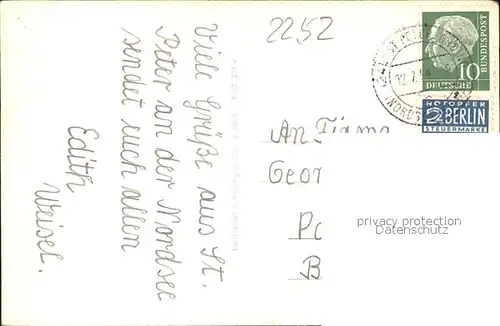 2252
Viele Grüße aus St.
Peter an der Nordsee
sendet euch allen
Edith
Weisel.
An Firma
Geor
Po
B
10
DEUTSCHE
BUNDESPOST
NOTOPFER
2 BERLIN
STEUERMARKE
12.7.
NORDS
privacy protection
Datenschutz